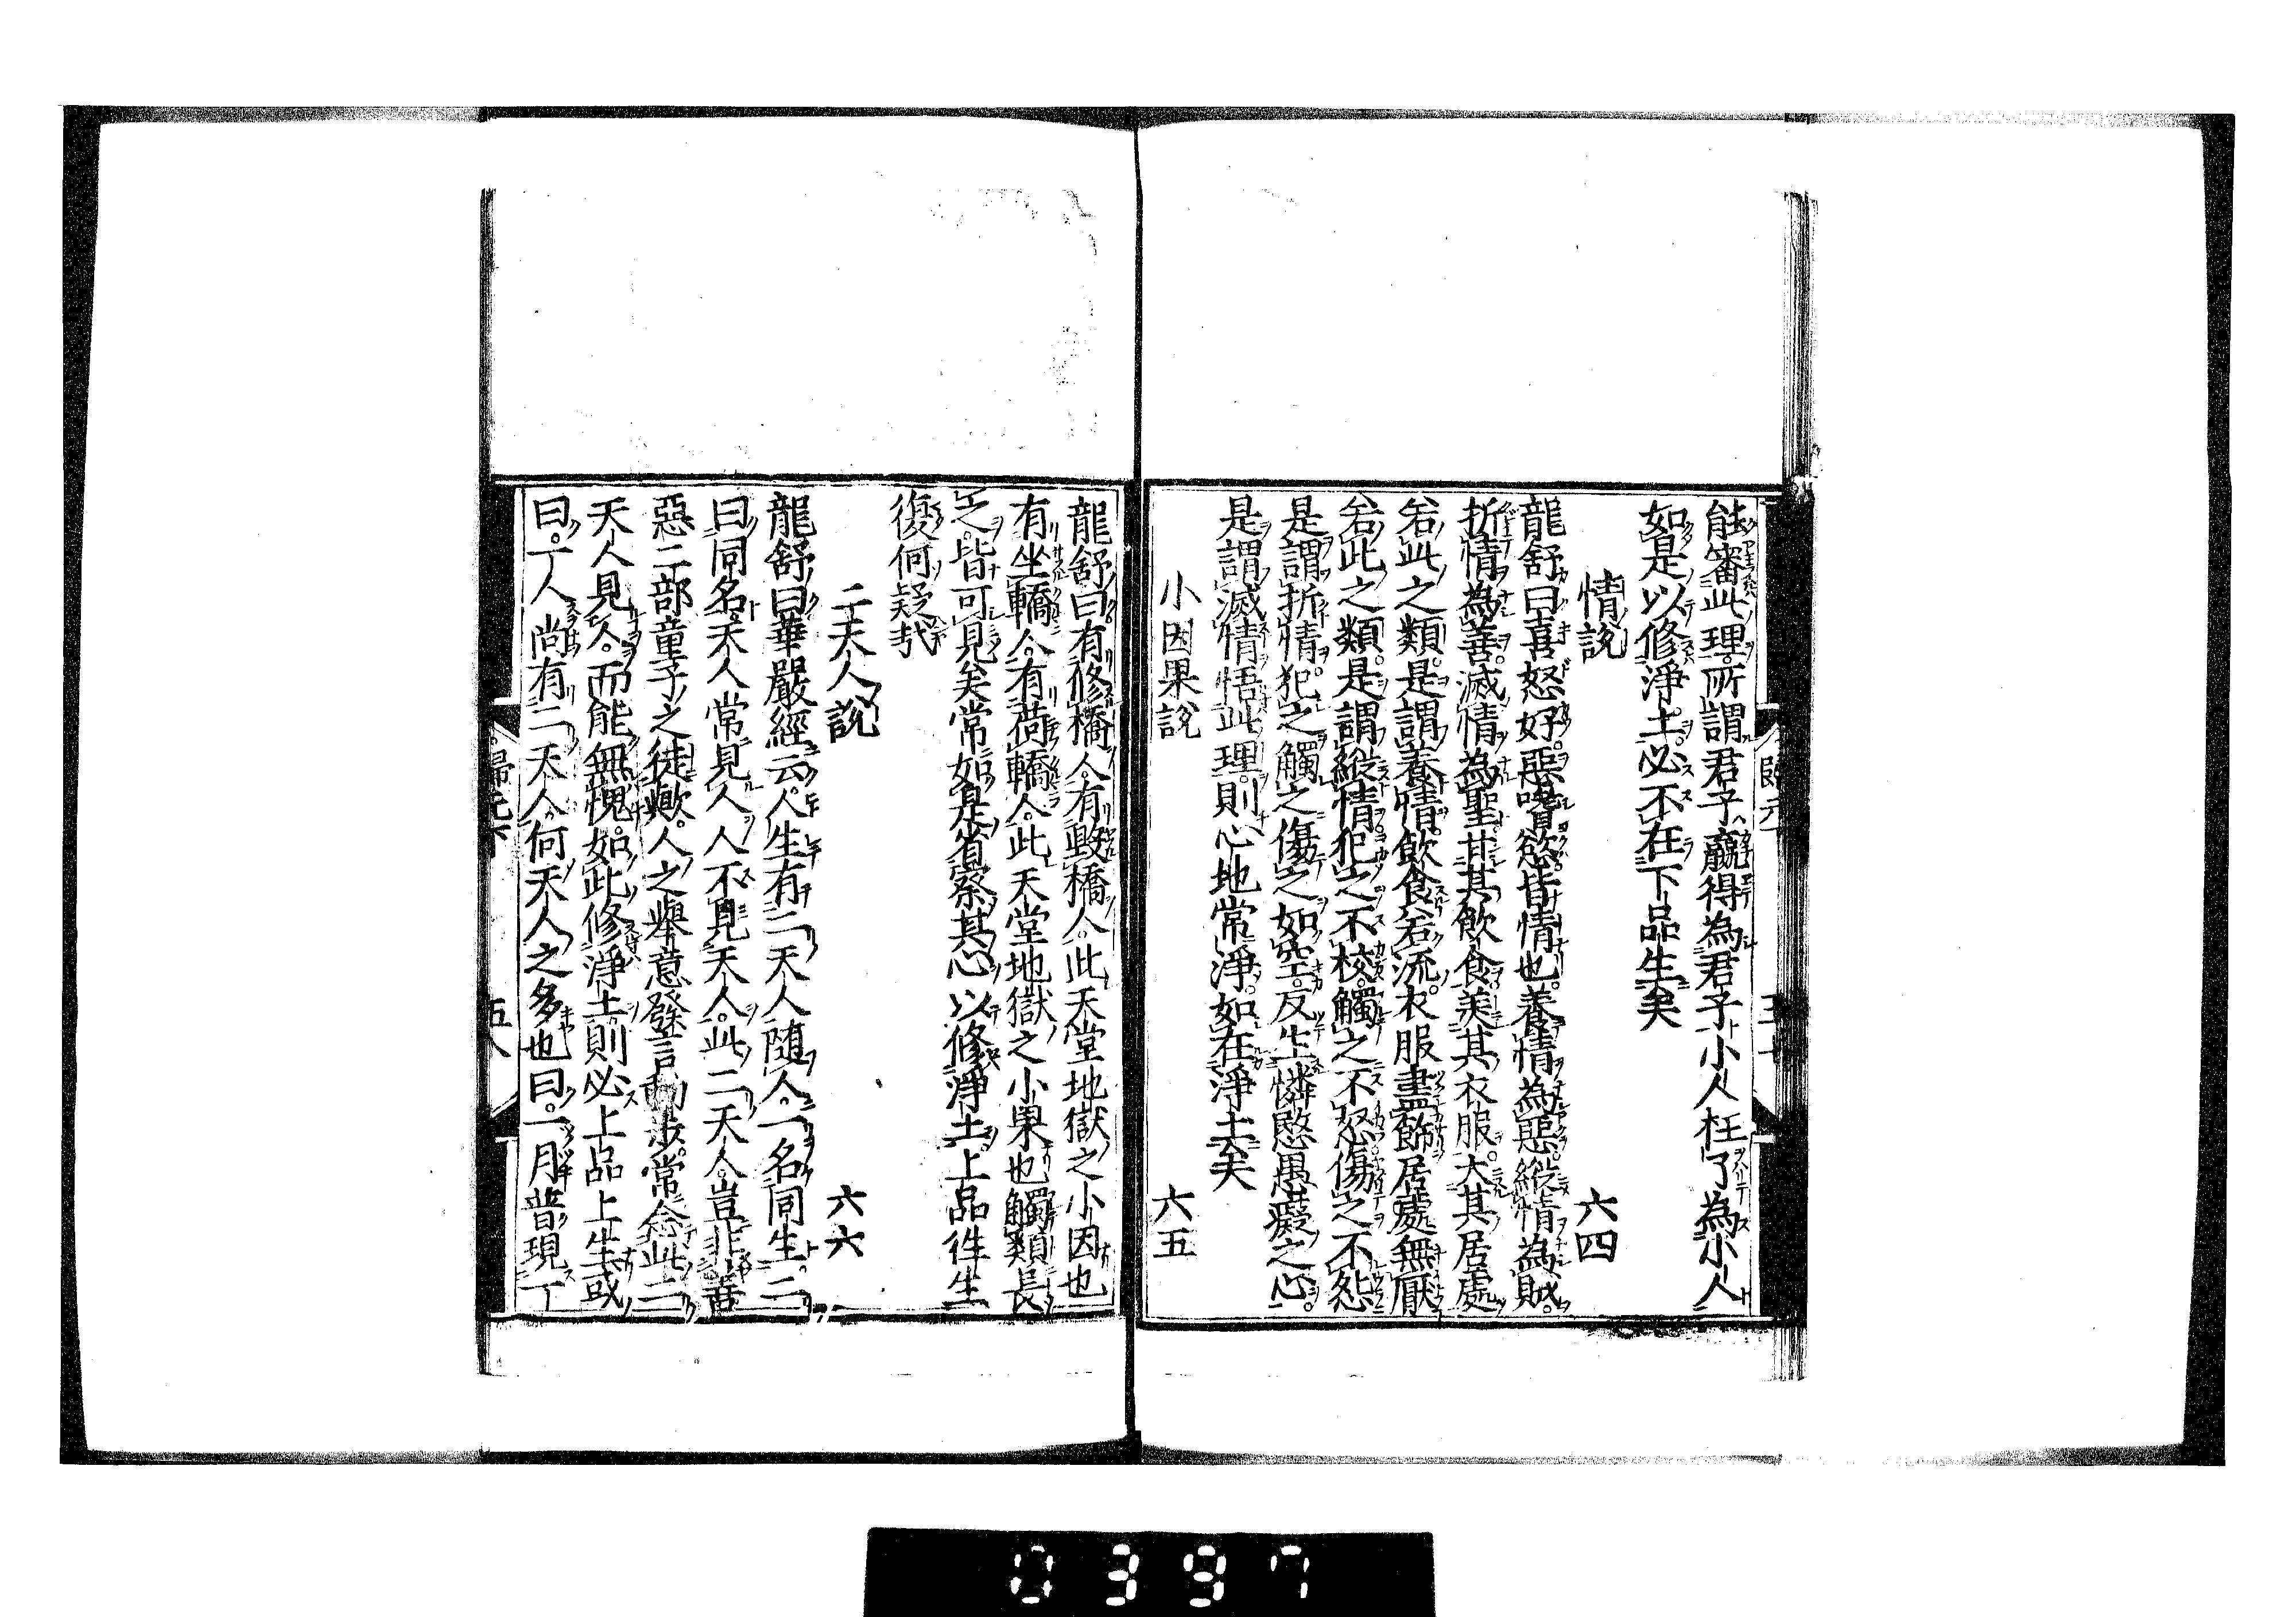 能審此理所謂君子贏得為君子小人枉了為小人
如是以修淨土必不在下品生矣
情說 六四
龍舒曰喜怒好惡嗜慾皆情也養情為惡縱情為賊
折情為善滅情為聖甘其飲食美其衣服大其居處
若此之類是謂養情飲食若流衣服盡飾居處無厭
若此之類是謂縱情犯之不校觸之不怒傷之不怨
是謂折情犯之觸之傷之如空反生憐愍愚癡之心
是謂滅情悟此理則心地常淨如在淨土矣
小因果說 六五
龍舒曰有修橋人有毀橋人此天堂地獄之小因也
有坐轎人有荷轎人此天堂地獄之小果也觸類長
之皆可見矣常如是省察其心以修淨土上品徃生
復何疑哉
二天人說 六六
龍舒曰華嚴經云人生有二天人隨人一名同生二
曰同名天人常見人人不見天人此二天人豈非善
惡二部童子之徒歟人之舉意發言動步常念此二
天人見人而能無愧如此修淨土則必上品上生或
曰一人尚有二天人何天人之多也曰一月普現一
歸元下 五八
0397